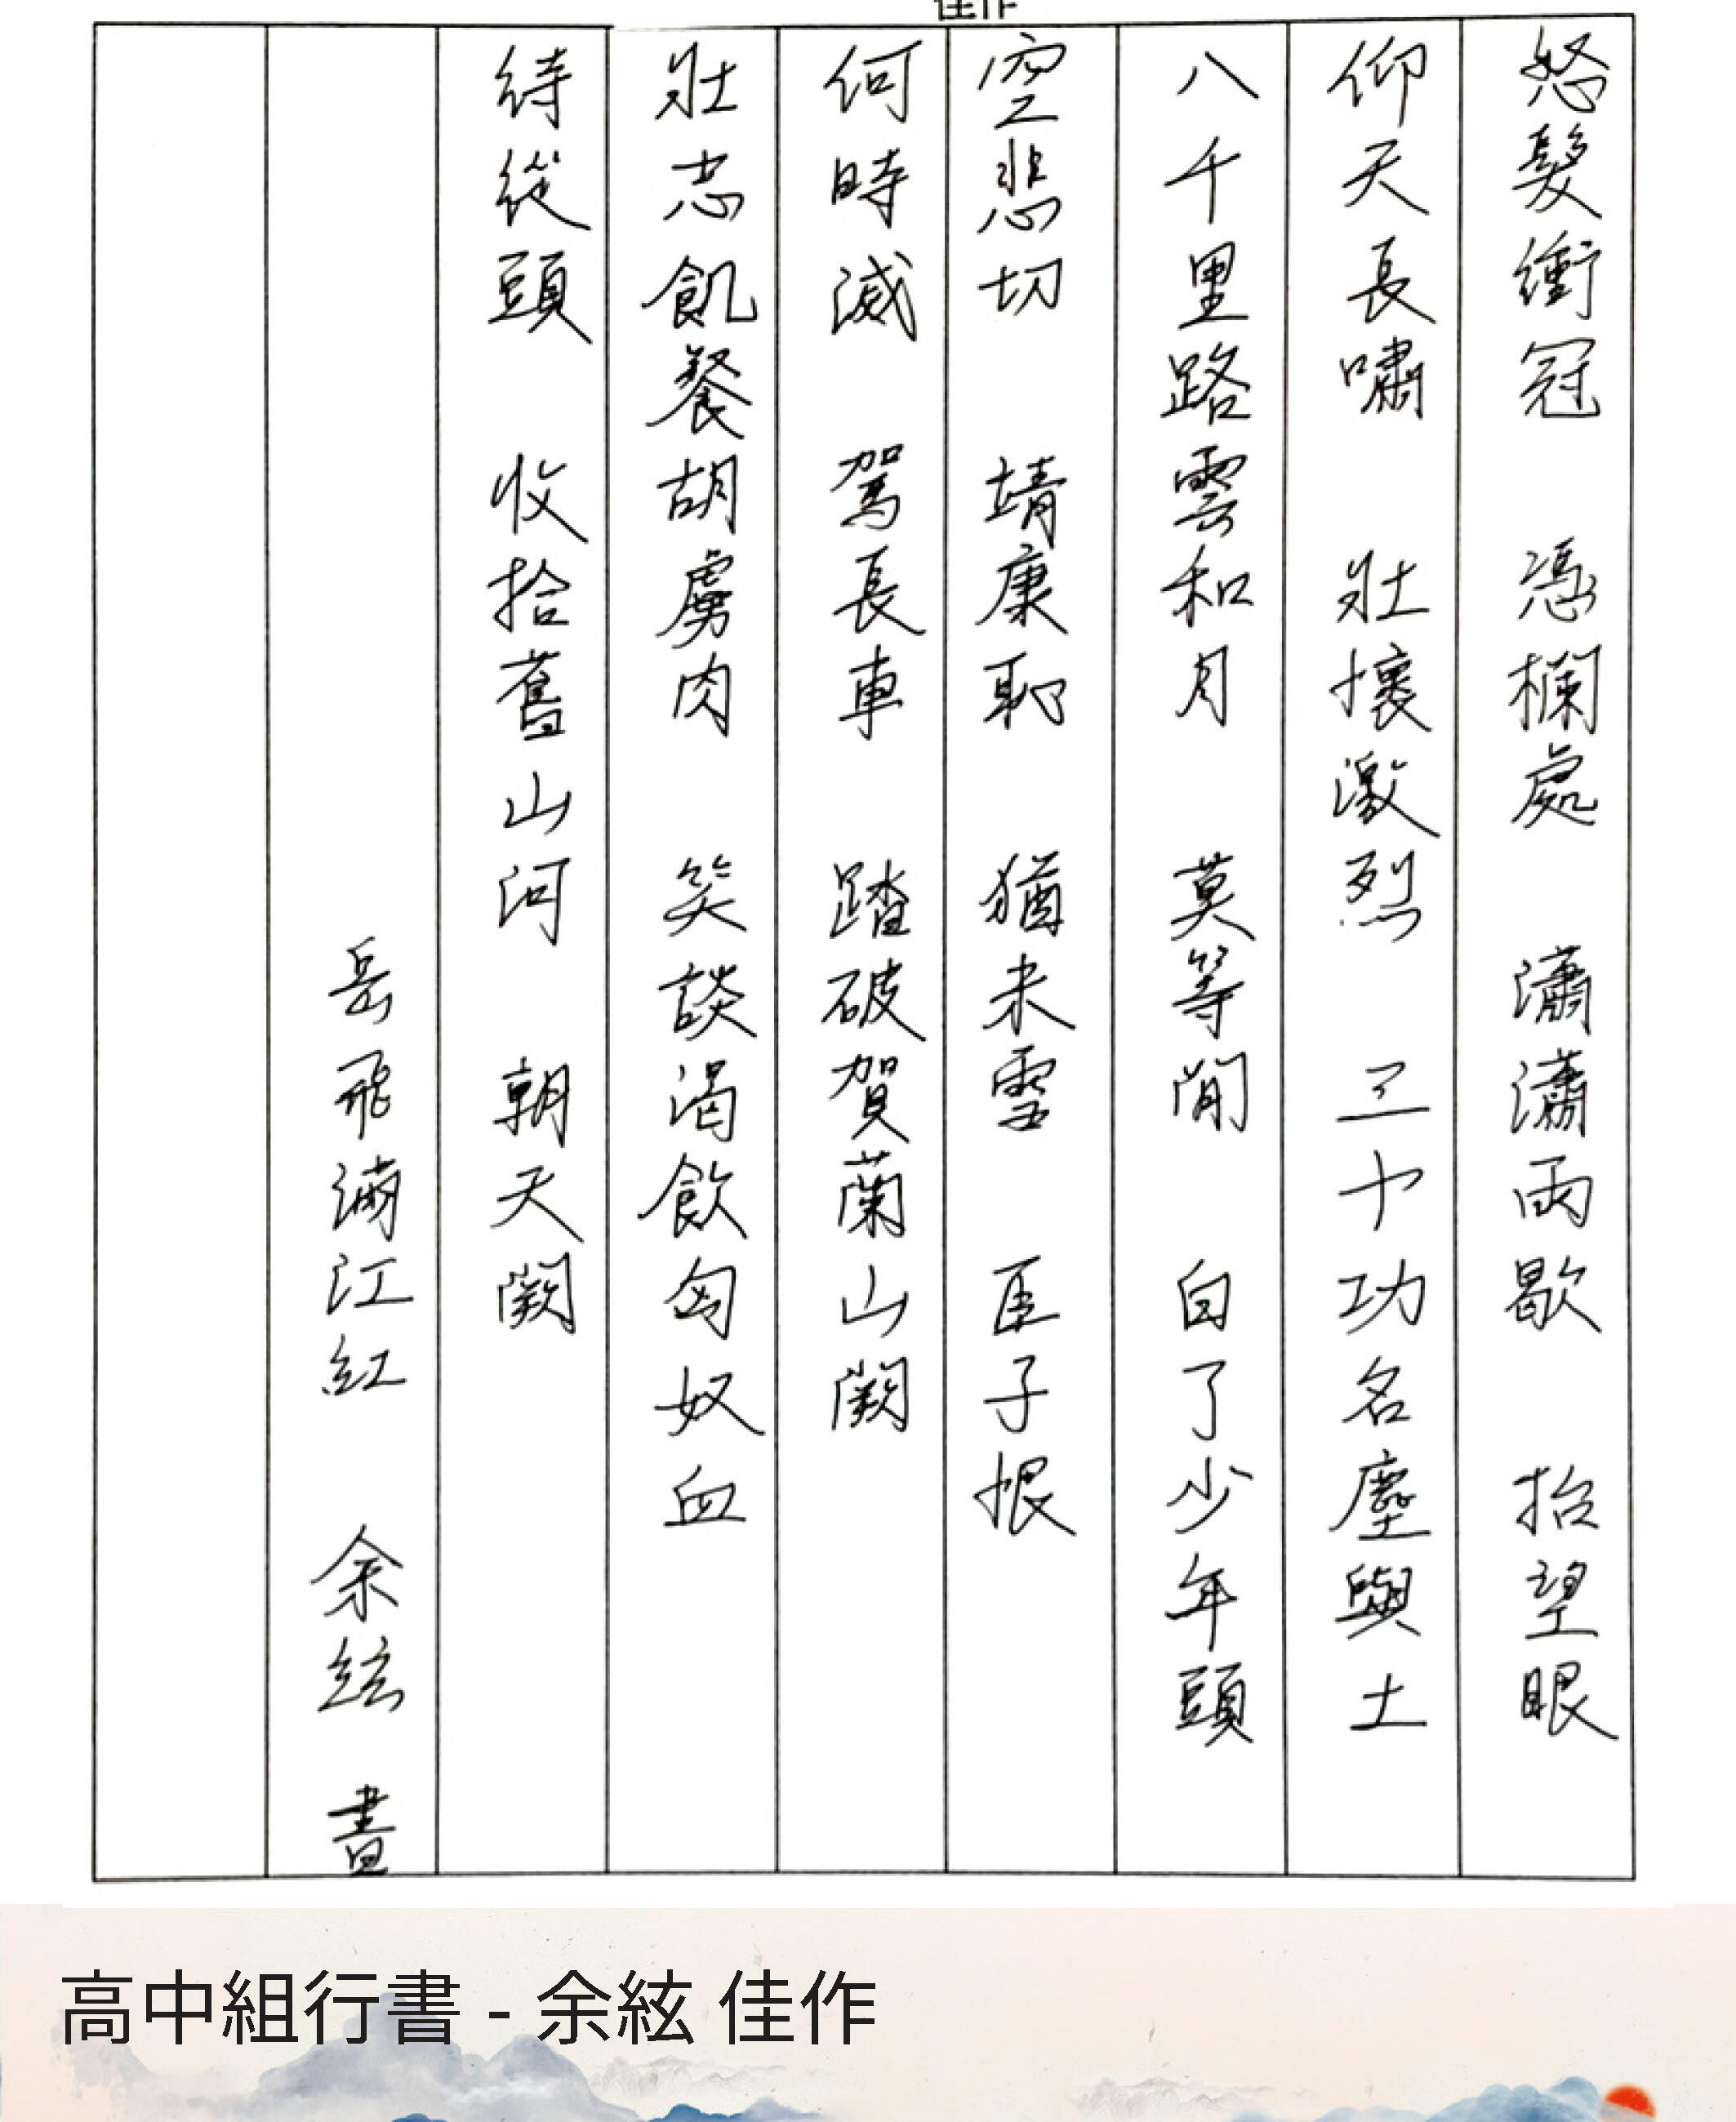 佳作
怒髮衝冠 憑欄處 瀟瀟雨歇 抬望眼
仰天長嘯 壯懷激烈 三十功名塵與土
八千里路雲和月 莫等閒 白了少年頭
空悲切 靖康恥 猶未雪 臣子恨
何時滅 駕長車 踏破賀蘭山闕
壯志飢餐胡虜肉 笑談渴飲匈奴血
待從頭 收拾舊山河 朝天闕
岳飛滿江紅 余絃 書
高中組行書 - 余絃 佳作